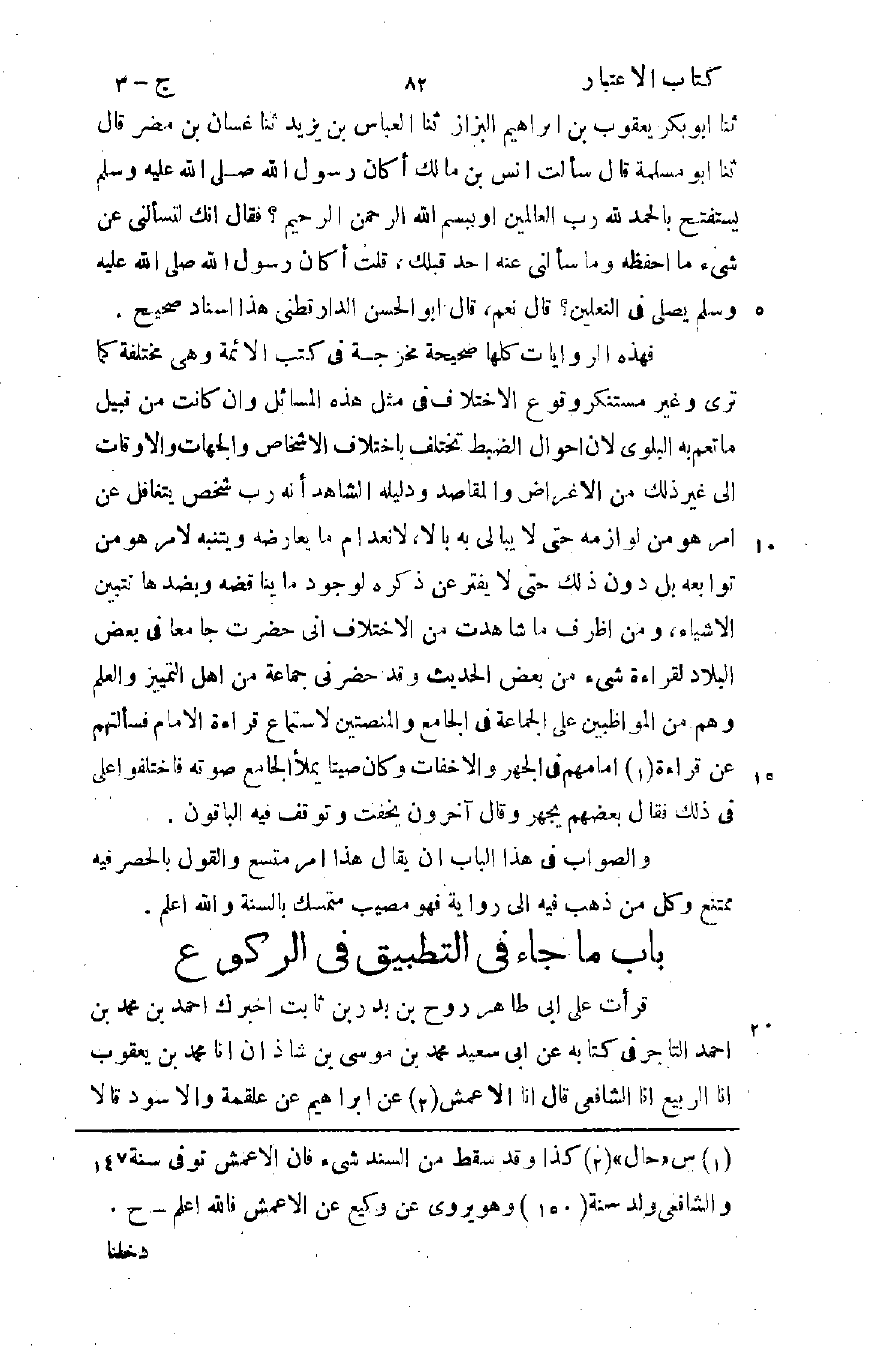 كتاب الاعتبار ٨٢ ج - ٣
ثنا ابو بكر يعقوب بن ابراهيم البزاز ثنا العباس بن يزيد ثنا غسان بن مضر قال
ثنا ابو مسلمة قال سألت انس بن مالك أكان رسول الله صلى الله عليه وسلم
يستفتح بالحمد لله رب العالمين او ببسم الله الرحمن الرحيم ؟ فقال انك لتسألنى عن
شىء ما احفظه وما سألنى عنه احد قبلك، قلت أكان رسول الله صلى الله عليه
وسلم يصلى فى النعلين؟ قال نعم، قال ابو الحسن الدارقطنى هذا اسناد صحيح . ٥
فهذه الروايات كلها صحيحة مخرجة فى كتب الائمة وهى مختلفة كما
ترى وغير مستنكر وقوع الاختلاف فى مثل هذه المسائل وان كانت من قبيل
ما تعم به البلوى لان احوال الضبط تختلف باختلاف الاشخاص والجهات والاوقات
الى غير ذلك من الاغراض والمقاصد ودليله الشاهد أنه رب شخص يتغافل عن
امر هو من لوازمه حتى لا يبالى به بالا، لانعدام ما يعارضه ويتنبه لامر هو من ١٠
توابعه بل دون ذلك حتى لا يفتر عن ذكره لوجود ما يناقضه وبضدها تتبين
الاشياء، ومن اظرف ما شاهدت من الاختلاف انى حضرت جامعا فى بعض
البلاد لقراءة شىء من بعض الحديث وقد حضرنى جماعة من اهل التمييز والعلم
وهم من المواظبين على الجماعة فى الجامع والمنصتين لاستماع قراءة الامام فسألتهم
عن قراءة (١) امامهم فى الجهر والاخفات وكان صيتا يملأ الجامع صوته فاختلفوا على ١٥
فى ذلك فقال بعضهم يجهر وقال آخرون يخفت وتوقف فيه الباقون .
والصواب فى هذا الباب ان يقال هذا امر متسع والقول بالحصر فيه
ممتنع وكل من ذهب فيه الى رواية فهو مصيب متمسك بالسنة والله اعلم .
باب ما جاء فى التطبيق فى الركوع
قرأت على ابى طاهر روح بن بدر بن ثابت اخبرك احمد بن محمد بن ٢٠
احمد التاجر فى كتابه عن ابى سعيد محمد بن موسى بن شاذان انا محمد بن يعقوب
انا الربيع انا الشافعى قال انا الاعمش (٢) عن ابراهيم عن علقمة والاسود قالا
(١) س «حال» (٢) كذا وقد سقط من السند شىء فان الاعمش توفى سنة ١٤٧
والشافعى ولد سنة (١٥٠) وهو يروى عن وكيع عن الاعمش فالله اعلم - ح .
دخلنا